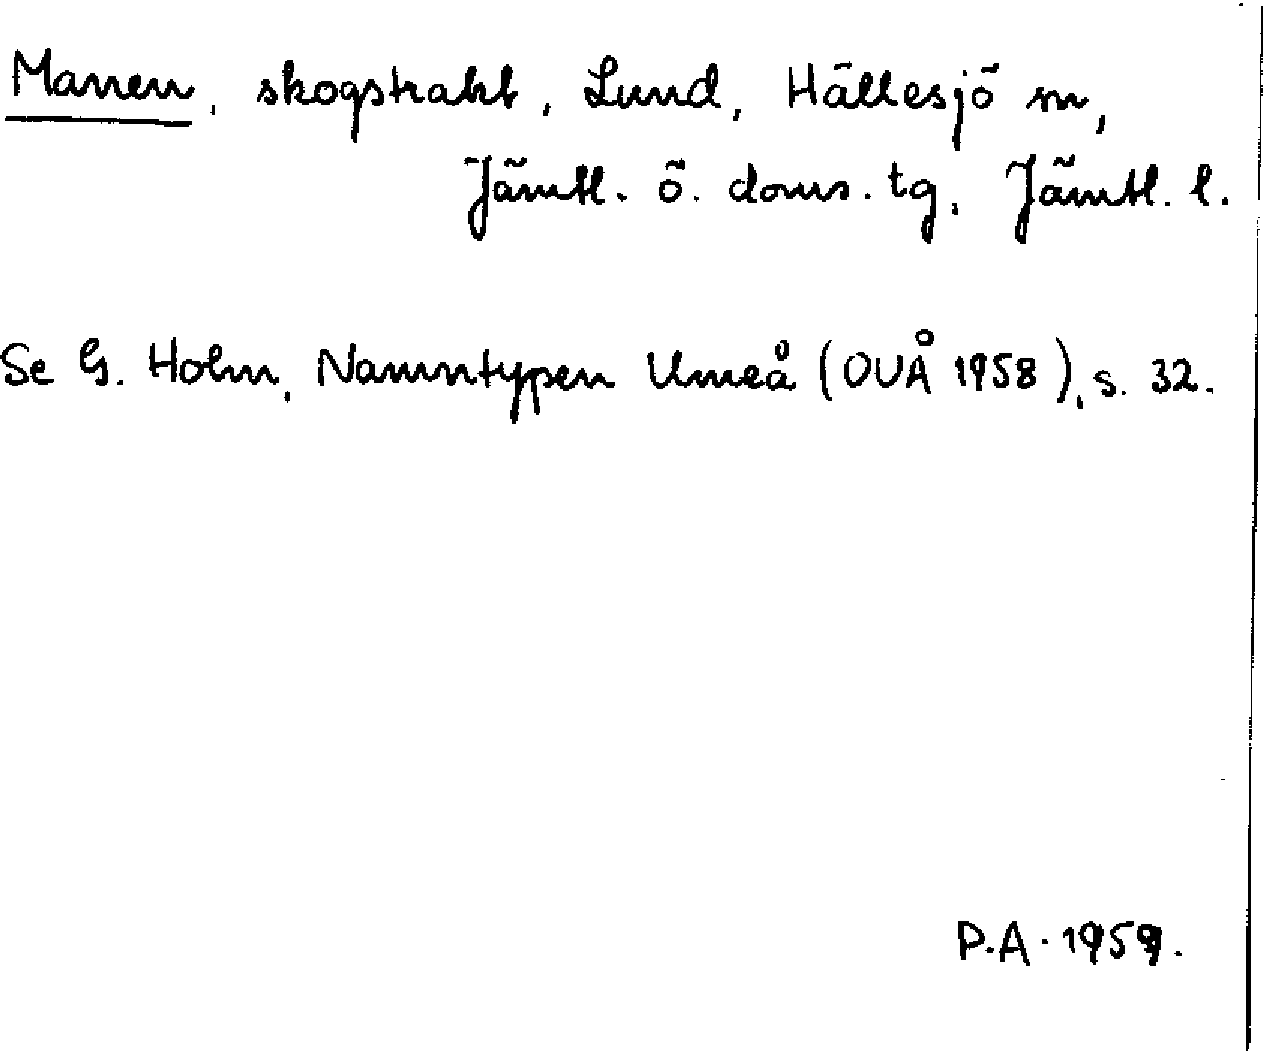 Marren, skogstrakt, Lund, Hällesjö sn,
Jämtl. ö. doms. tg, Jämtl. l.
Se G. Holm, Namntypen Umeå (OUÅ 1958), s. 32.
P.A. 1959.